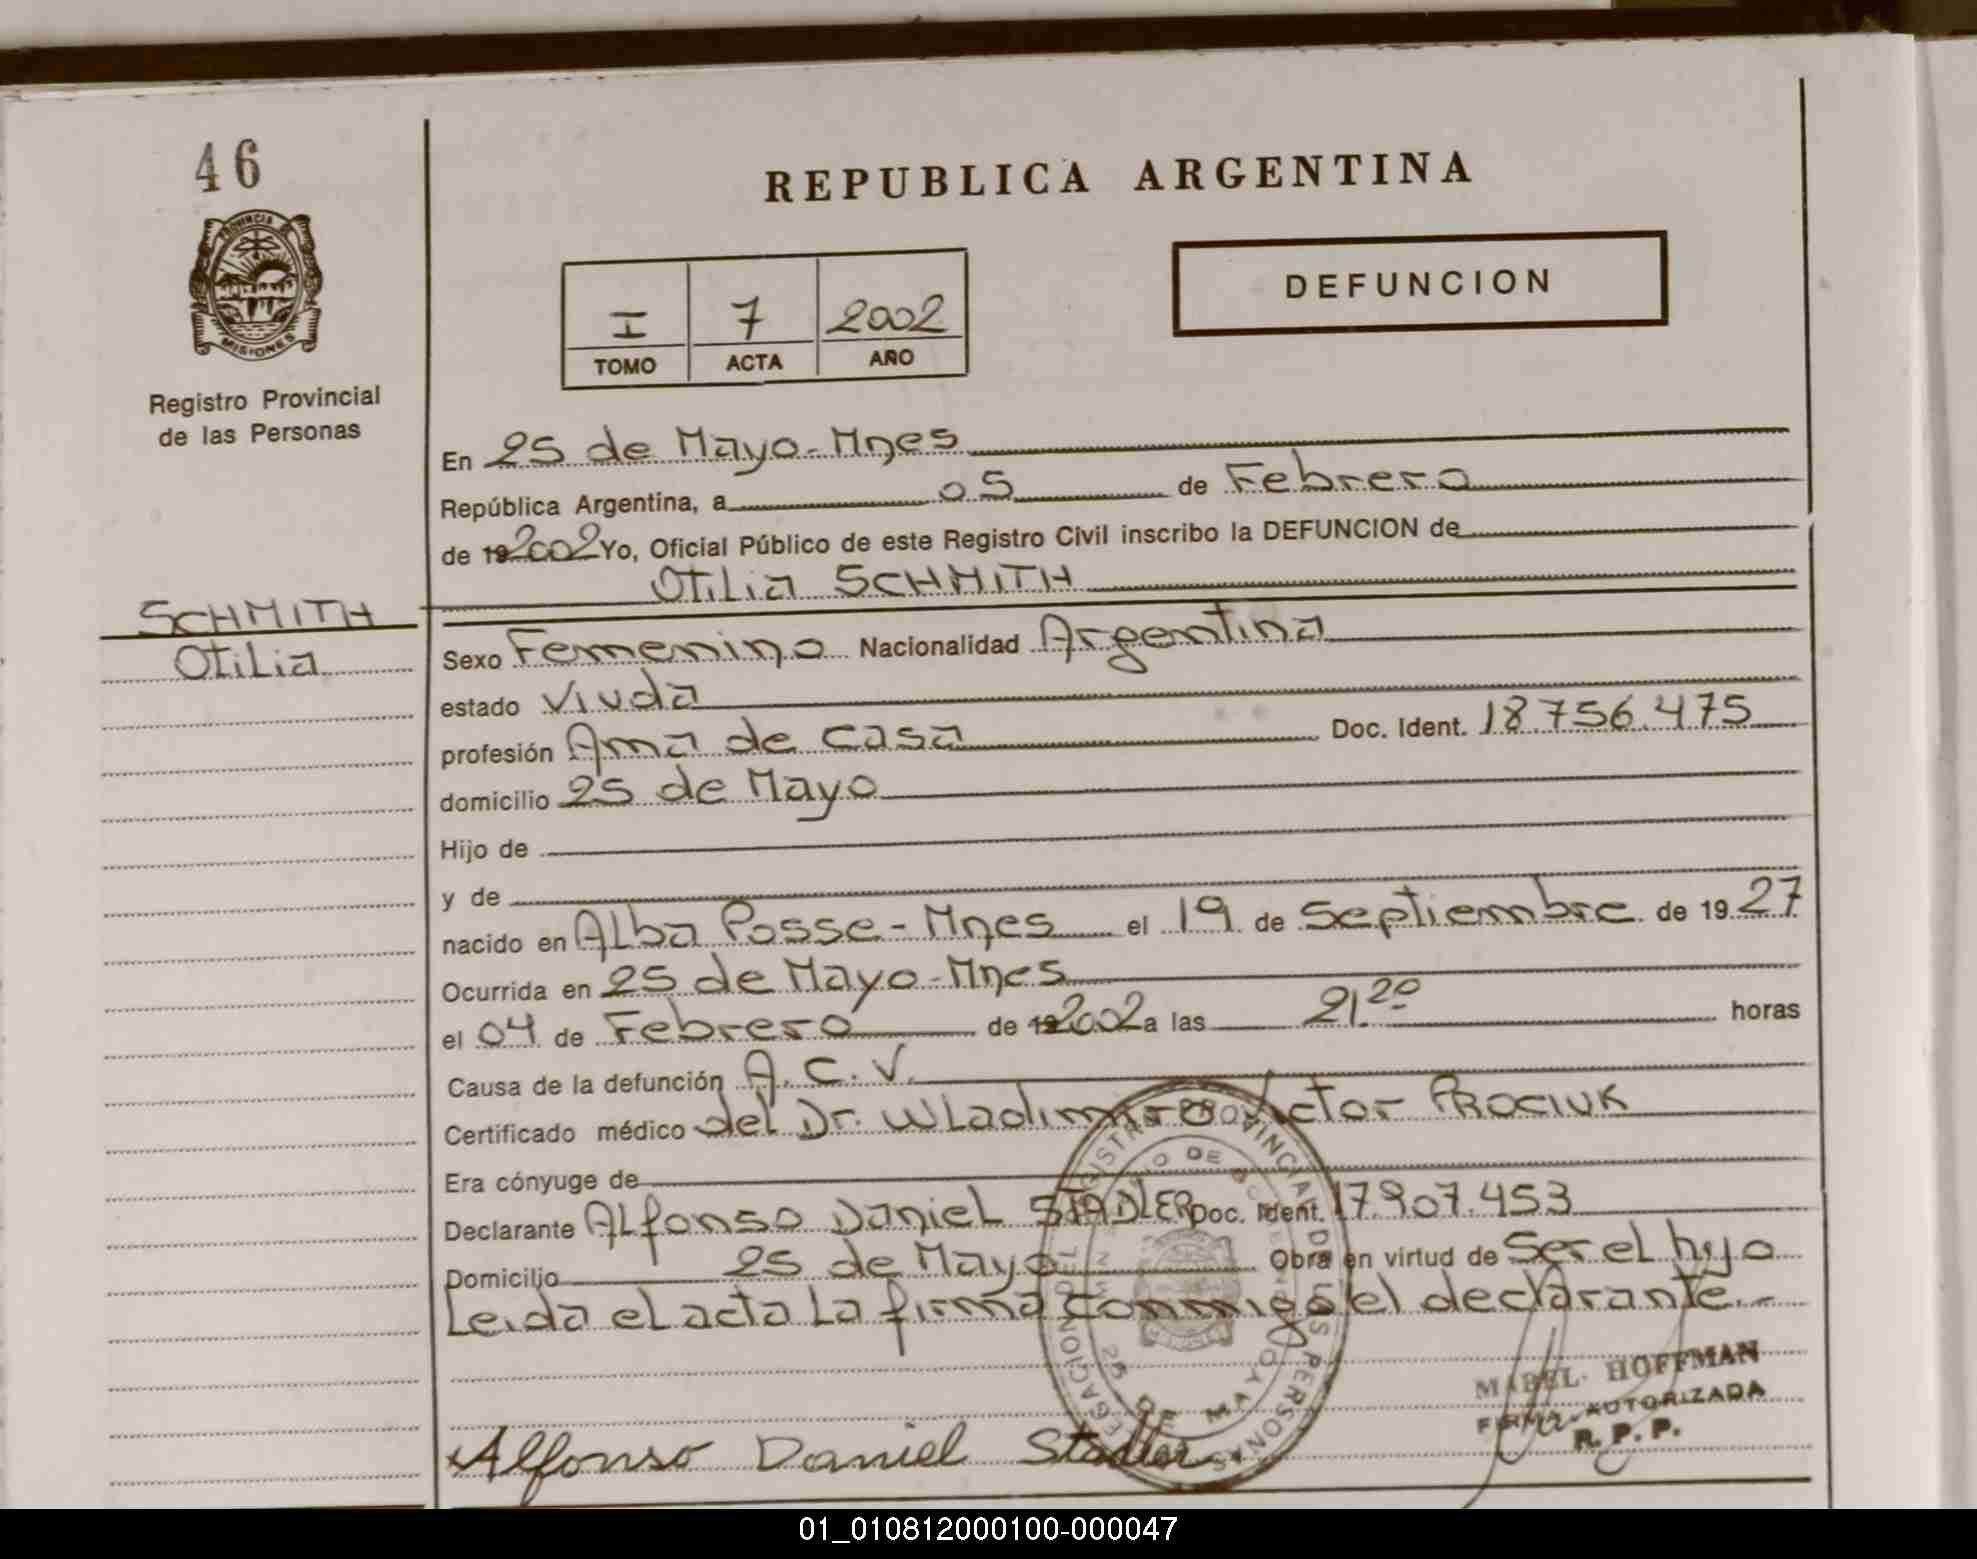 46
PROVINCIA DE
MISIONES
Registro Provincial
de las Personas
SCHMITH
Otilia
REPUBLICA ARGENTINA
I 7 2002
TOMO ACTA AÑO
DEFUNCION
En 25 de Mayo-Mnes
República Argentina, a 05 de Febrero
de 19 2002 Yo, Oficial Público de este Registro Civil inscribo la DEFUNCION de
Otilia SCHMITH
Sexo Femenino Nacionalidad Argentina
estado Viuda
profesión Ama de casa Doc. Ident. 18.756.475
domicilio 25 de Mayo
Hijo de
y de
nacido en Alba Posse-Mnes el 19 de Septiembre de 19 27
Ocurrida en 25 de Mayo-Mnes
el 04 de Febrero de 19 2002 a las 21.20 horas
Causa de la defunción A.C.V.
Certificado médico del Dr. Wladimiro Victor PROCIUK
Era cónyuge de
Declarante Alfonso Daniel STADLER Doc. Ident. 17.907.453
Domicilio 25 de Mayo Obra en virtud de Ser el hijo
Leida el acta la firma conmigo el declarante.-
REGISTRO PROVINCIAL DE LAS PERSONAS
DELEGACION
25 DE MAYO
MABEL HOFFMAN
FIRMA AUTORIZADA
R.P.P.
Alfonso Daniel Stadler
01_010812000100-000047